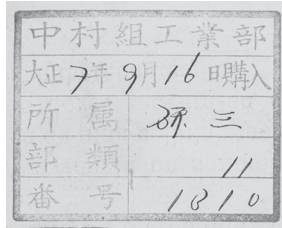 中村組工業部
大正7年9月16日購入
所属 研三
部類 11
番号 1310